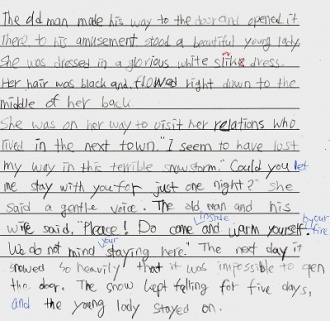 The old man make his way to the door and opened it
There to his amusement stood a beautiful young lady.
She was dressed in a glorious white silk dress.
Her hair was black and flowed right down to the
middle of her back.
She was on her way to visit her relations who
lived in the next town. "I seem to have lost
my way in this terrible snowstorm." Could you let
me stay with you for just one night?" she
said a gentle voice. The old man and his
wife said, "Please! Do come inside and warm yourself by our fire
We do not mind your staying here." The next day it
snowed so heavily that it was impossible to open
the door. The snow kept felling for five days,
and the young lady stayed on.